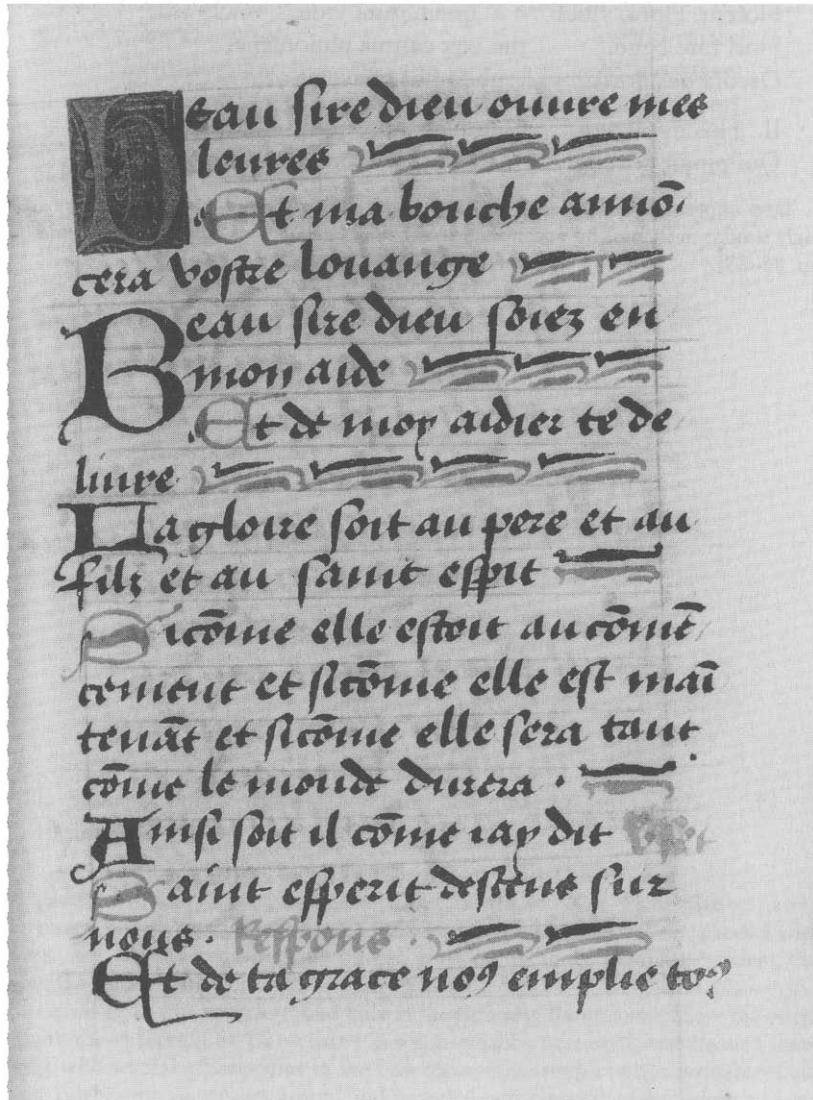 Beau sire dieu ouure mes
leures
Et ma bouche annō
cera vostre louange
Beau sire dieu soiez en
mon aide
Et de moy aidier te de
liure
La gloire soit au pere et au
filz et au saint esp̄it
Sicōme elle estoit au cōmēt
cement et sicōme elle est maī
tenāt et sicōme elle sera tant
cōme le monde durera .
Ainsi soit il cōme iay dit
Saint esperit descens sur
nous . Respons .
Et de ta grace noꝰ emplie toꝰ